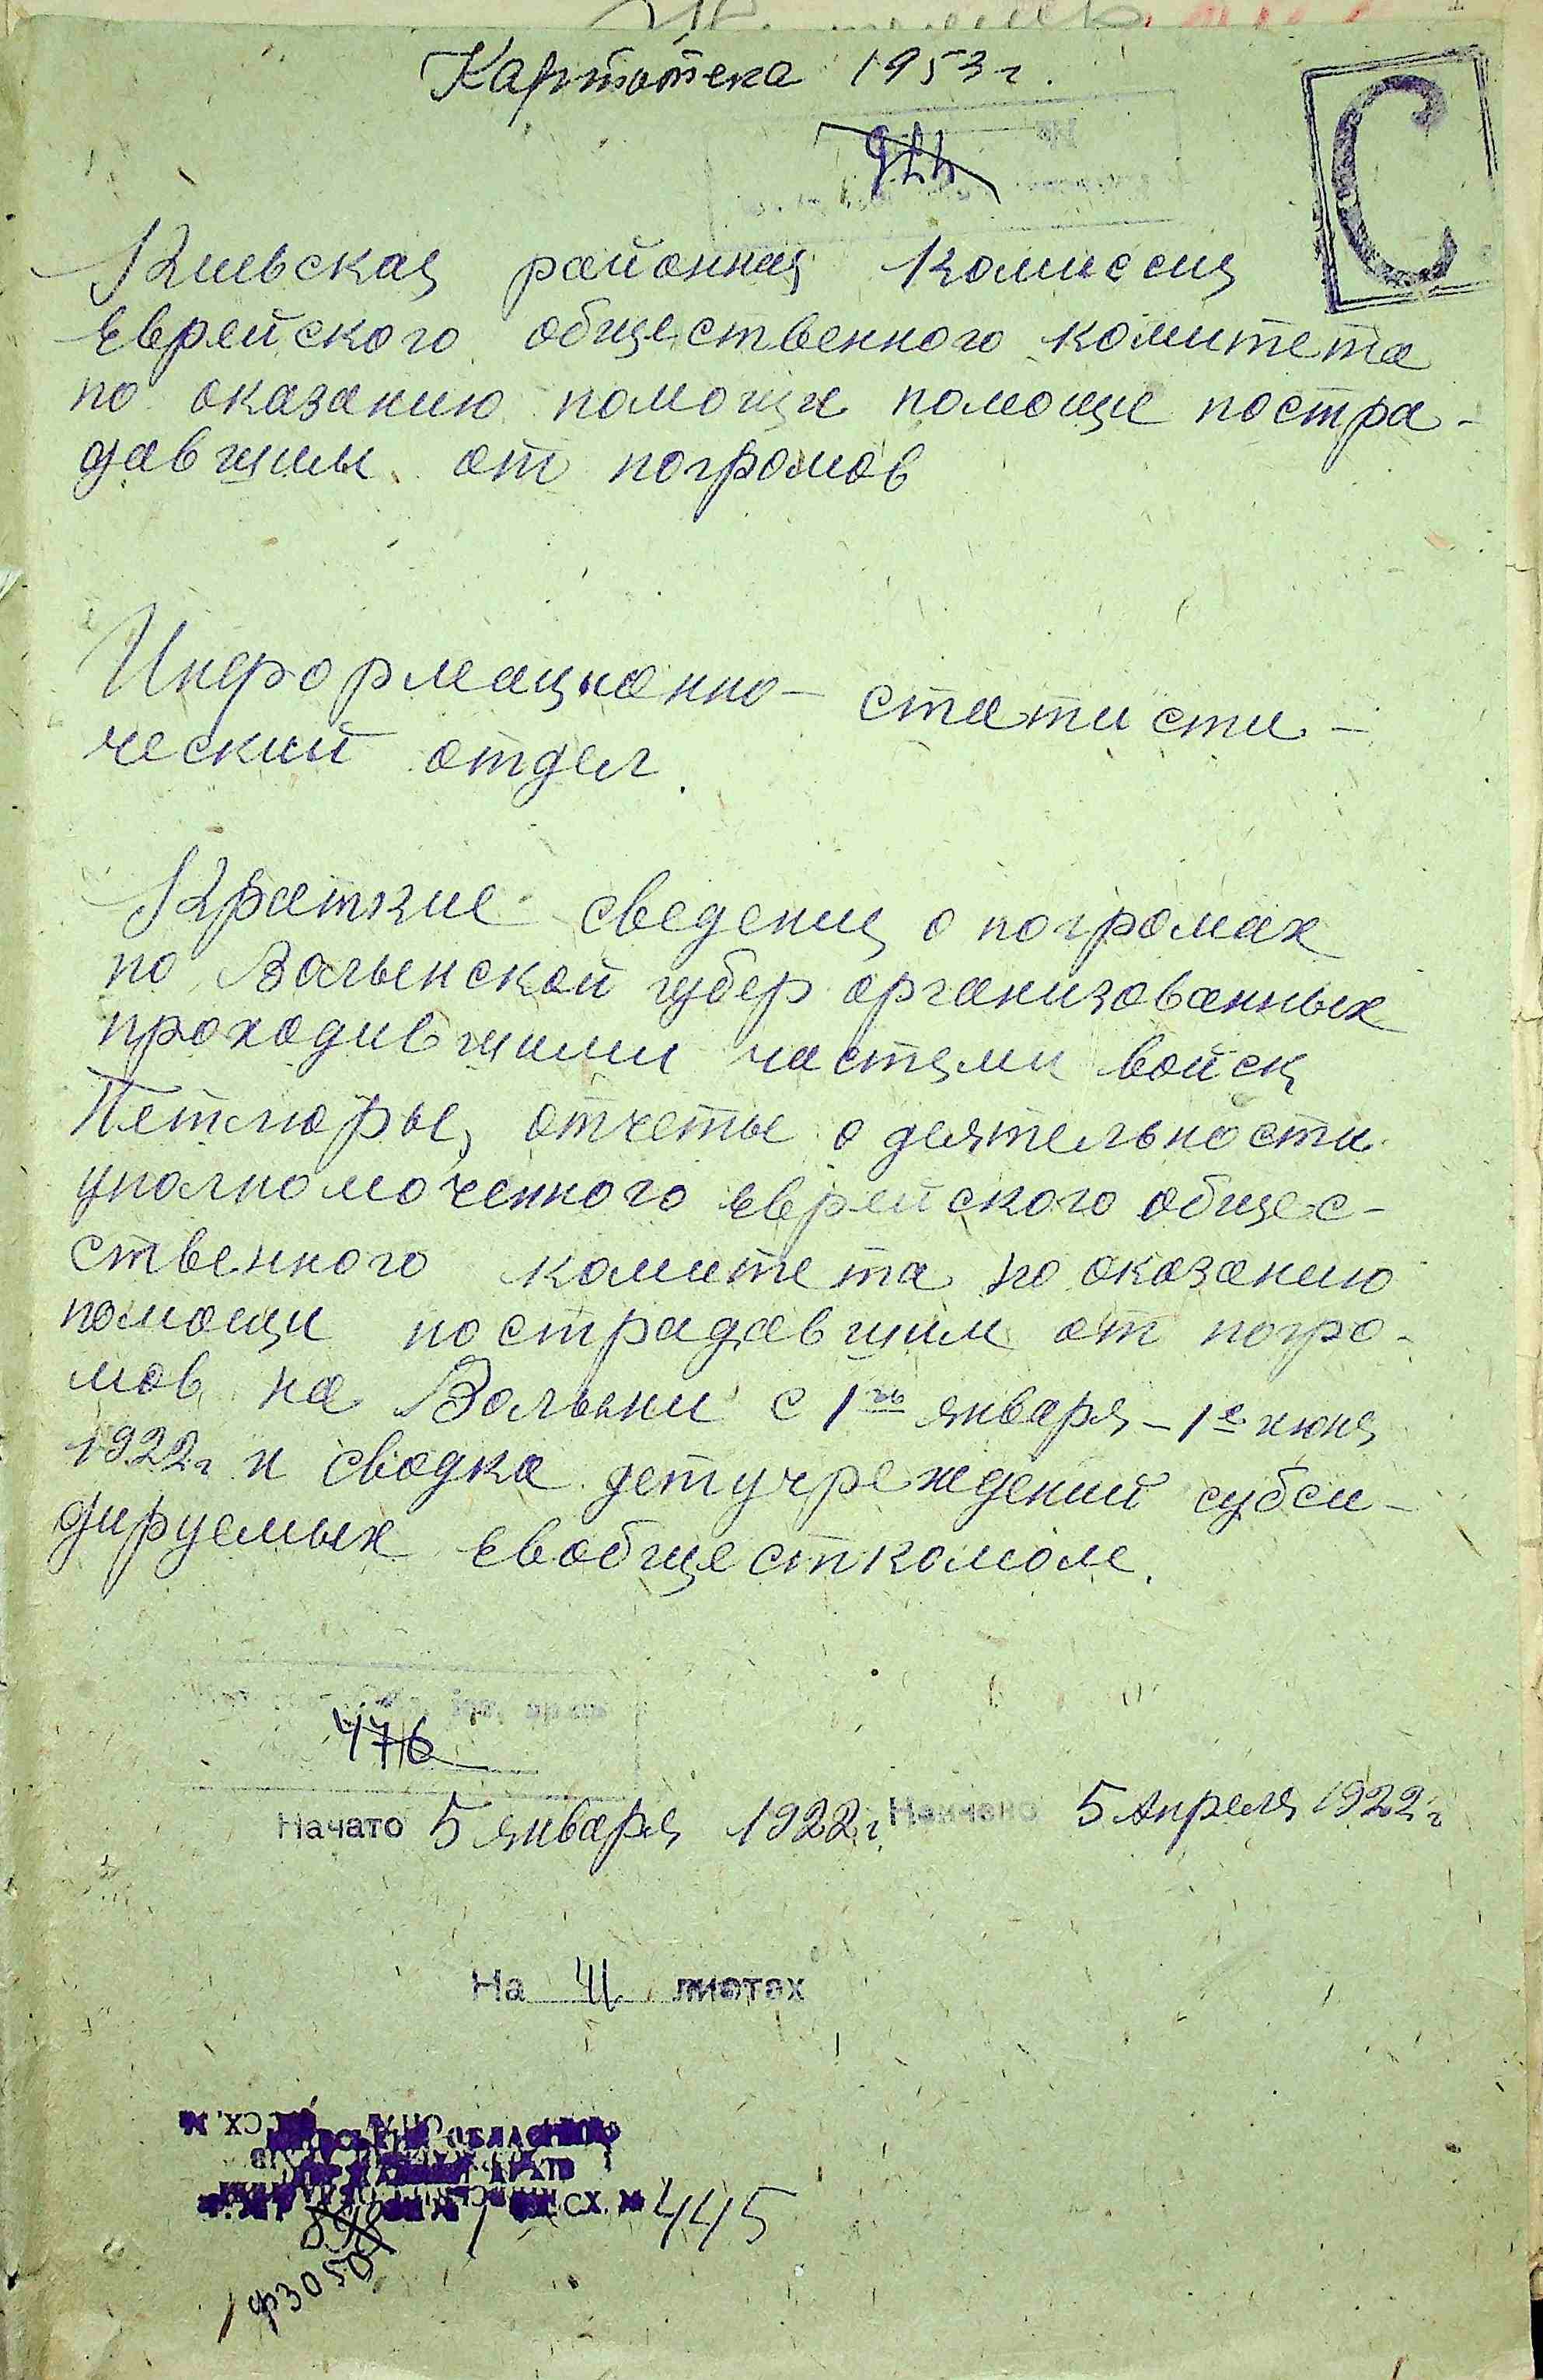 Картотека 1953 г.
924
С
Киевская районная Комиссия
Еврейского общественного комитета
по оказанию помощи помощи постра-
давшим от погромов
Информационно-статисти-
ческий отдел.
Краткие сведения о погромах
по Волынской губер организованных
проходившими частями войск
Петлюры, отчеты о деятельности
уполномоченного еврейского общес-
ственного комитета по оказанию
помощи пострадавшим от погро-
мов на Волыни с 1го января - 1е июня
1922г и сводка детучреждений субси-
дируемых евобщесткомом.
476
Начато 5 января 1922г. Кончено 5 Апреля 1922г
На 41 листах
ОБЛАСНИЙ
АРХІВ
898 1 СХ. № 445
Ф3050